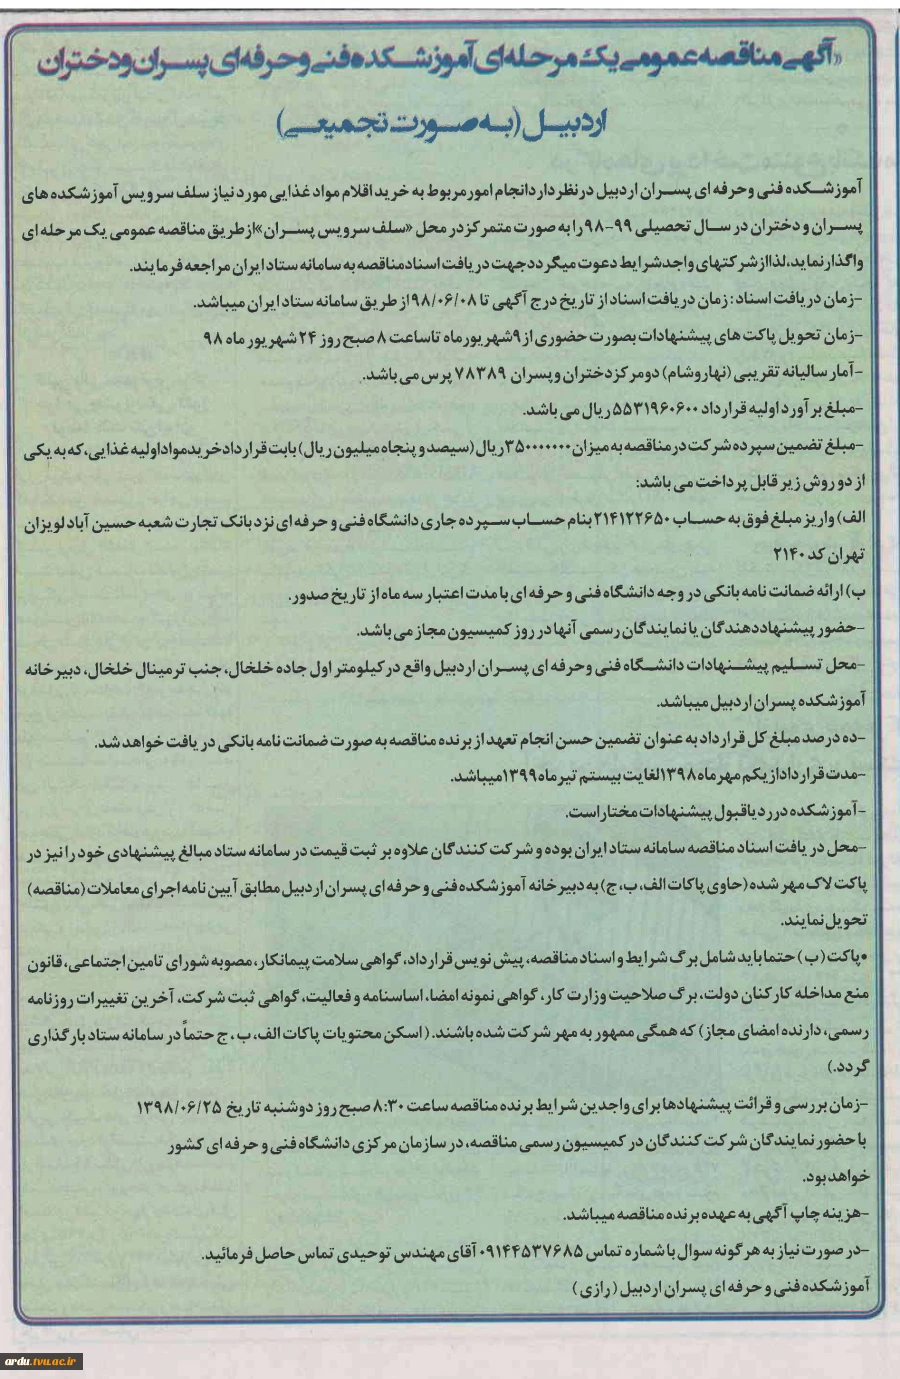 «آگهی مناقصه عمومی یک مرحله‌ای آموزشکده فنی و حرفه‌ای پسران و دختران
اردبیل (به صورت تجمیعی)
آموزشکده فنی وحرفه ای پسران اردبیل در نظر دارد انجام امور مربوط به خرید اقلام مواد غذایی مورد نیاز سلف سرویس آموزشکده های
پسران و دختران در سال تحصیلی ۹۹-۹۸ را به صورت متمرکز در محل «سلف سرویس پسران» از طریق مناقصه عمومی یک مرحله ای
واگذار نماید، لذا از شرکتهای واجد شرایط دعوت میگردد جهت دریافت اسناد مناقصه به سامانه ستاد ایران مراجعه فرمایند.
-زمان دریافت اسناد: زمان دریافت اسناد از تاریخ درج آگهی تا ۹۸/۰۶/۰۸ از طریق سامانه ستاد ایران میباشد.
-زمان تحویل پاکت های پیشنهادات بصورت حضوری از ۹ شهریور ماه تا ساعت ۸ صبح روز ۲۴ شهریور ماه ۹۸
-آمار سالیانه تقریبی (نهار و شام) دو مرکز دختران و پسران ۷۸۳۸۹ پرس می باشد.
-مبلغ برآورد اولیه قرارداد ۵۵۳۱۹۶۰۶۰۰ ریال می باشد.
-مبلغ تضمین سپرده شرکت در مناقصه به میزان ۳۵۰۰۰۰۰۰۰ ریال (سیصد و پنجاه میلیون ریال) بابت قرارداد خرید مواد اولیه غذایی، که به یکی
از دو روش زیر قابل پرداخت می باشد:
الف) واریز مبلغ فوق به حساب ۲۱۴۱۲۲۶۵۰ بنام حساب سپرده جاری دانشگاه فنی و حرفه ای نزد بانک تجارت شعبه حسین آباد لویزان
تهران کد ۲۱۴۰
ب) ارائه ضمانت نامه بانکی در وجه دانشگاه فنی و حرفه ای با مدت اعتبار سه ماه از تاریخ صدور.
-حضور پیشنهاددهندگان یا نمایندگان رسمی آنها در روز کمیسیون مجاز می باشد.
-محل تسلیم پیشنهادات دانشگاه فنی وحرفه ای پسران اردبیل واقع در کیلومتر اول جاده خلخال، جنب ترمینال خلخال، دبیرخانه
آموزشکده پسران اردبیل میباشد.
-ده درصد مبلغ کل قرارداد به عنوان تضمین حسن انجام تعهد از برنده مناقصه به صورت ضمانت نامه بانکی دریافت خواهد شد.
-مدت قرارداد از یکم مهر ماه ۱۳۹۸ لغایت بیستم تیر ماه ۱۳۹۹ میباشد.
-آموزشکده در رد یا قبول پیشنهادات مختار است.
-محل دریافت اسناد مناقصه سامانه ستاد ایران بوده و شرکت کنندگان علاوه بر ثبت قیمت در سامانه ستاد مبالغ پیشنهادی خود را نیز در
پاکت لاک مهر شده (حاوی پاکات الف، ب، ج) به دبیرخانه آموزشکده فنی و حرفه ای پسران اردبیل مطابق آیین نامه اجرای معاملات (مناقصه)
تحویل نمایند.
•پاکت (ب) حتما باید شامل برگ شرایط و اسناد مناقصه، پیش نویس قرارداد، گواهی سلامت پیمانکار، مصوبه شورای تامین اجتماعی، قانون
منع مداخله کارکنان دولت، برگ صلاحیت وزارت کار، گواهی نمونه امضا، اساسنامه و فعالیت، گواهی ثبت شرکت، آخرین تغییرات روزنامه
رسمی، دارنده امضای مجاز) که همگی ممهور به مهر شرکت شده باشند. (اسکن محتویات پاکات الف، ب، ج حتماً در سامانه ستاد بارگذاری
گردد.)
-زمان بررسی و قرائت پیشنهادها برای واجدین شرایط برنده مناقصه ساعت ۸:۳۰ صبح روز دوشنبه تاریخ ۱۳۹۸/۰۶/۲۵
با حضور نمایندگان شرکت کنندگان در کمیسیون رسمی مناقصه، در سازمان مرکزی دانشگاه فنی و حرفه ای کشور
خواهد بود.
-هزینه چاپ آگهی به عهده برنده مناقصه میباشد.
-در صورت نیاز به هر گونه سوال با شماره تماس ۰۹۱۴۴۵۳۷۶۸۵ آقای مهندس توحیدی تماس حاصل فرمائید.
آموزشکده فنی و حرفه ای پسران اردبیل (رازی)
ardu.tvu.ac.ir